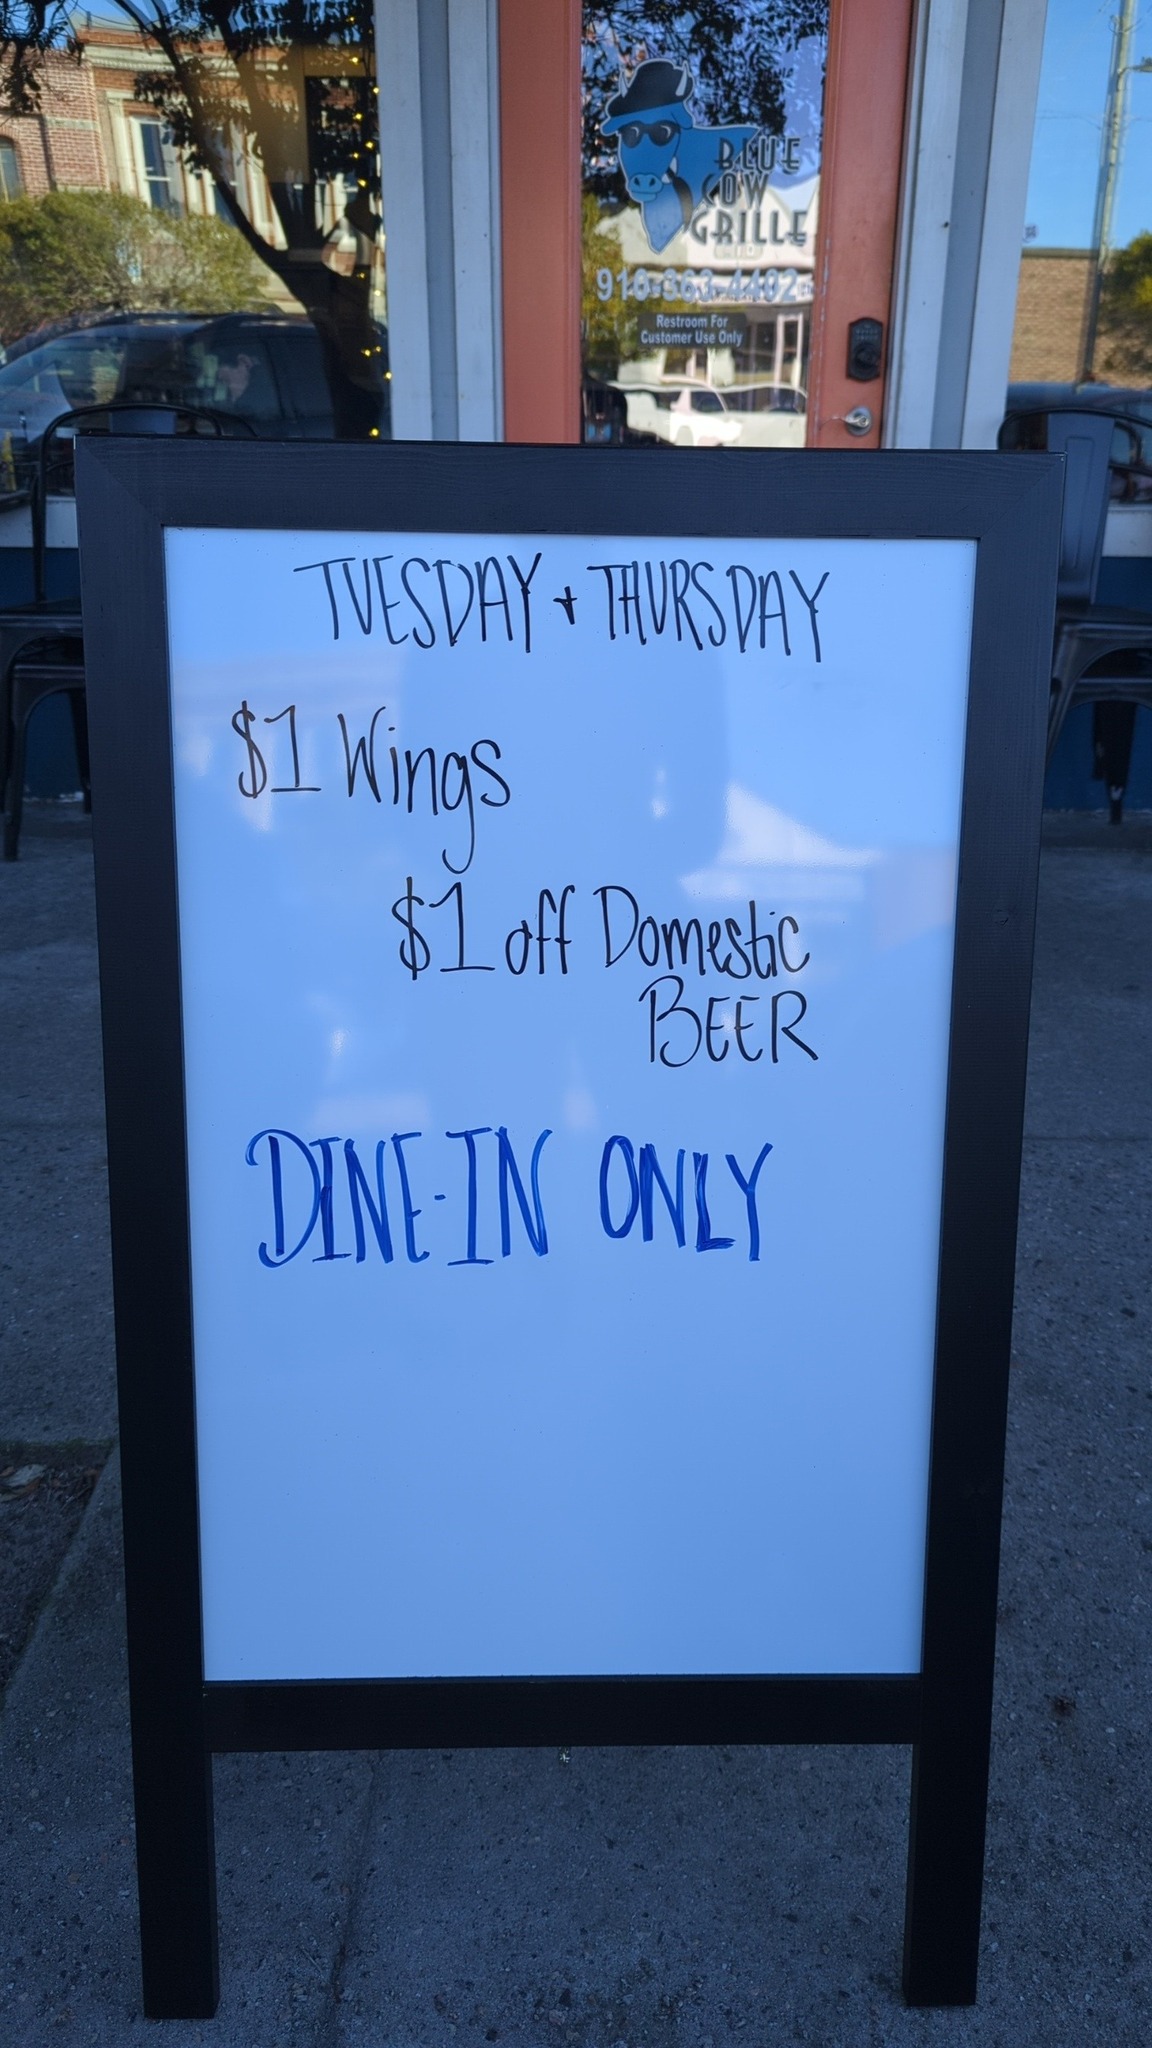 BLUE
COW
GRILLE
910-363-4402
Restroom For
Customer Use Only
TUESDAY + THURSDAY
$1 Wings
$1 off Domestic
BEER
DINE-IN ONLY